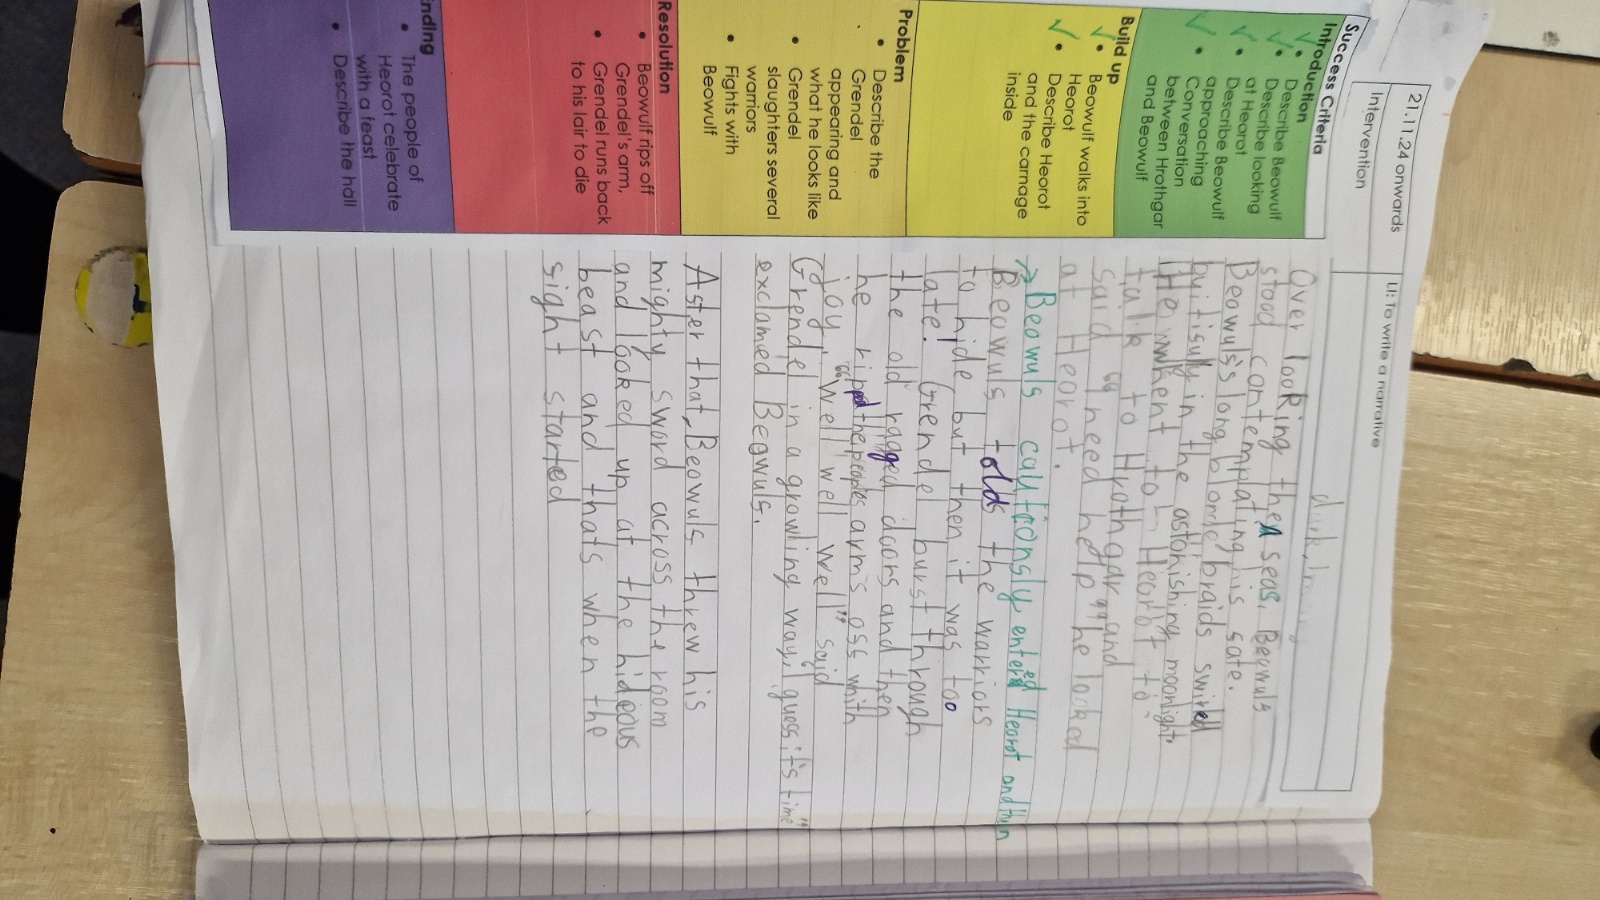 21.11.24 onwards
LI: To write a narrative
Intervention
Success Criteria
Introduction
• Describe Beowulf
• Describe looking
at Heorot
• Describe Beowulf
approaching
• Conversation
between Hrothgar
and Beowulf
Build up
• Beowulf walks into
Heorot
• Describe Heorot
and the carnage
inside
Problem
• Describe the
Grendel
appearing and
what he looks like
• Grendel
slaughters several
warriors
• Fights with
Beowulf
Resolution
• Beowulf rips off
Grendel's arm,
• Grendel runs back
to his lair to die
nding
• The people of
Heorot celebrate
with a feast
• Describe the hall
Over looking the seas, Beowuls
stood contemplating his sate.
Beowuls's long blonde braids swirled
buitisuly in the astonishing moonlight.
He whent to Heorot to
talk to Hrothgar and
said "I need help" he looked
at Heorot.
→ Beowuls cautionsly entered Heorot and then
Beowuls told the warriors
to hide but then it was too
late! Grendel burst through
the old ragged doors and then
he ripped the peoples arm's oss whith
joy, "Well well well well" said
Grendel in a growling way, I guess it's time"
exclamed Beowuls.
Aster that, Beowuls threw his
mighty sword across the room
and looked up at the hideous
beast and thats when the
sight started